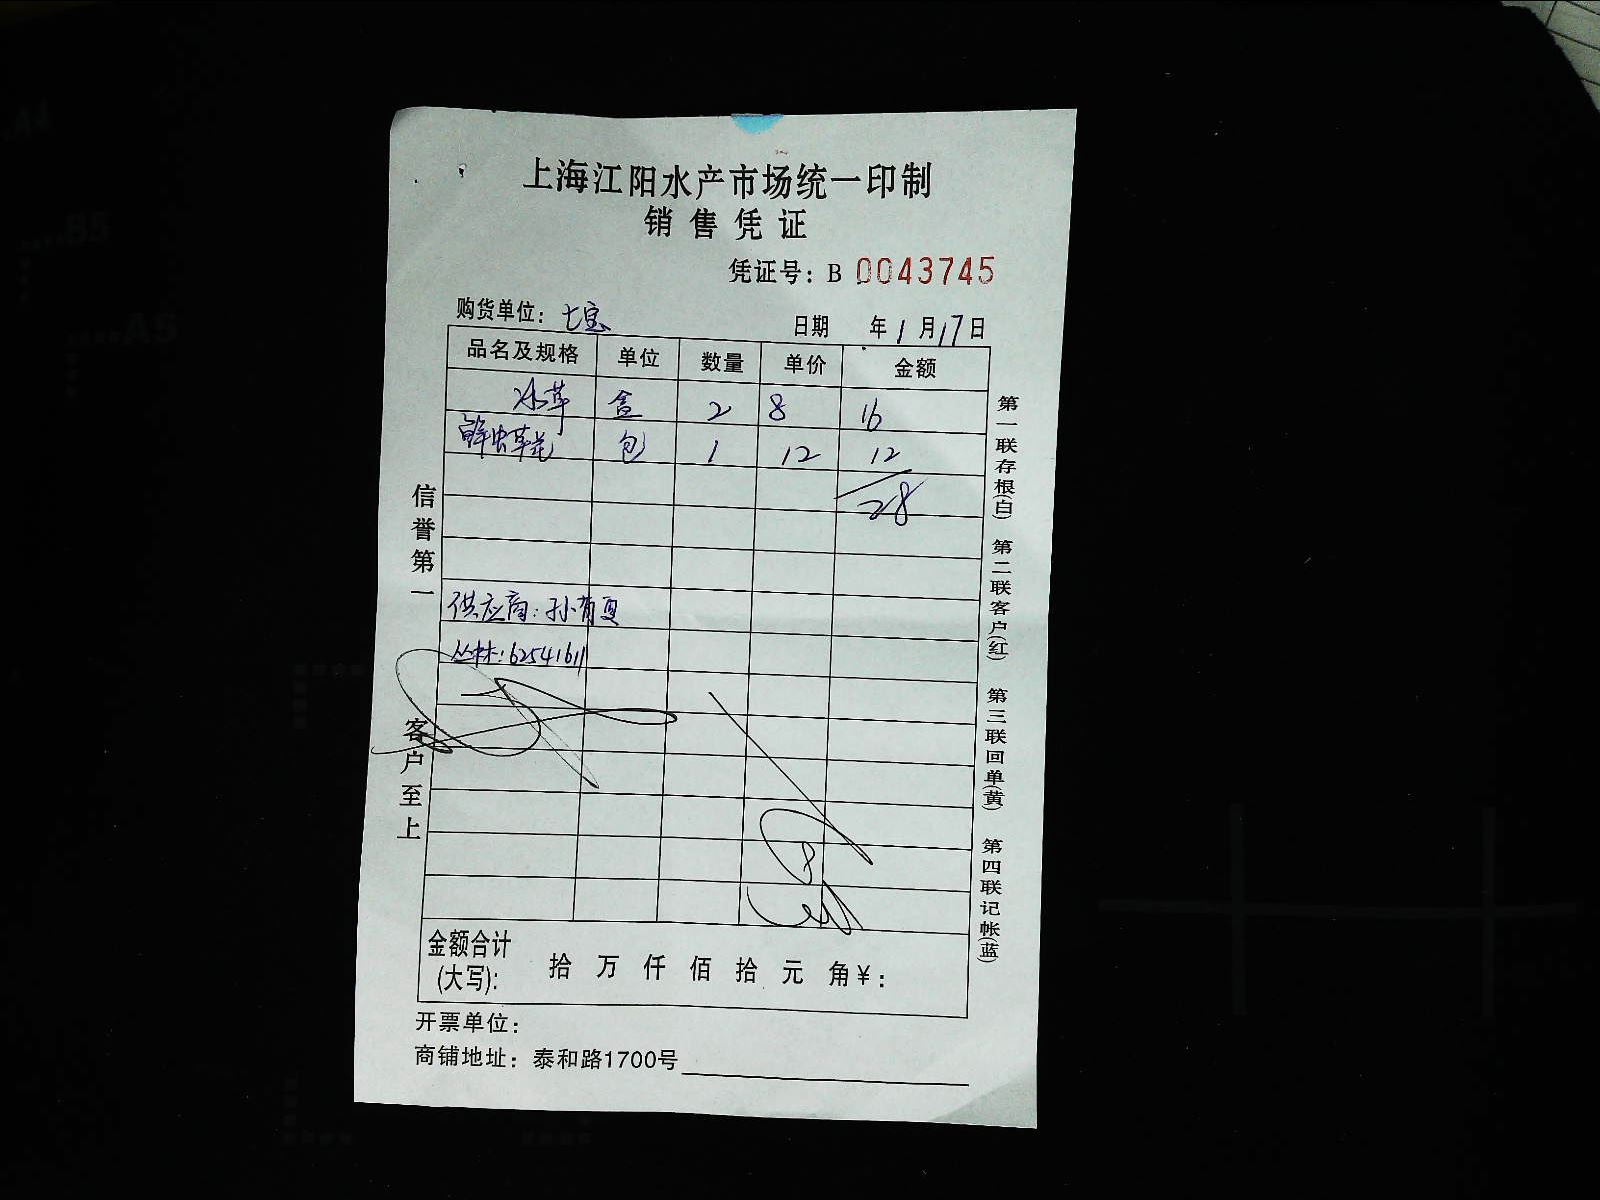 上海江阳水产市场统一印制
销售凭证
凭证号：B 0043745
购货单位：七宝 日期 年1月17日
品名及规格 单位 数量 单价 金额
冰草 盒 2 8 16
鲜虫草花 包 1 12 12
28
供应商：孙有夏
丛林：62541611
金额合计(大写)： 拾 万 仟 佰 拾 元 角 ¥：
开票单位：
商铺地址：泰和路1700号
信誉第一 客户至上
第一联存根(白) 第二联客户(红) 第三联回单(黄) 第四联记帐(蓝)
A4
B5
A5